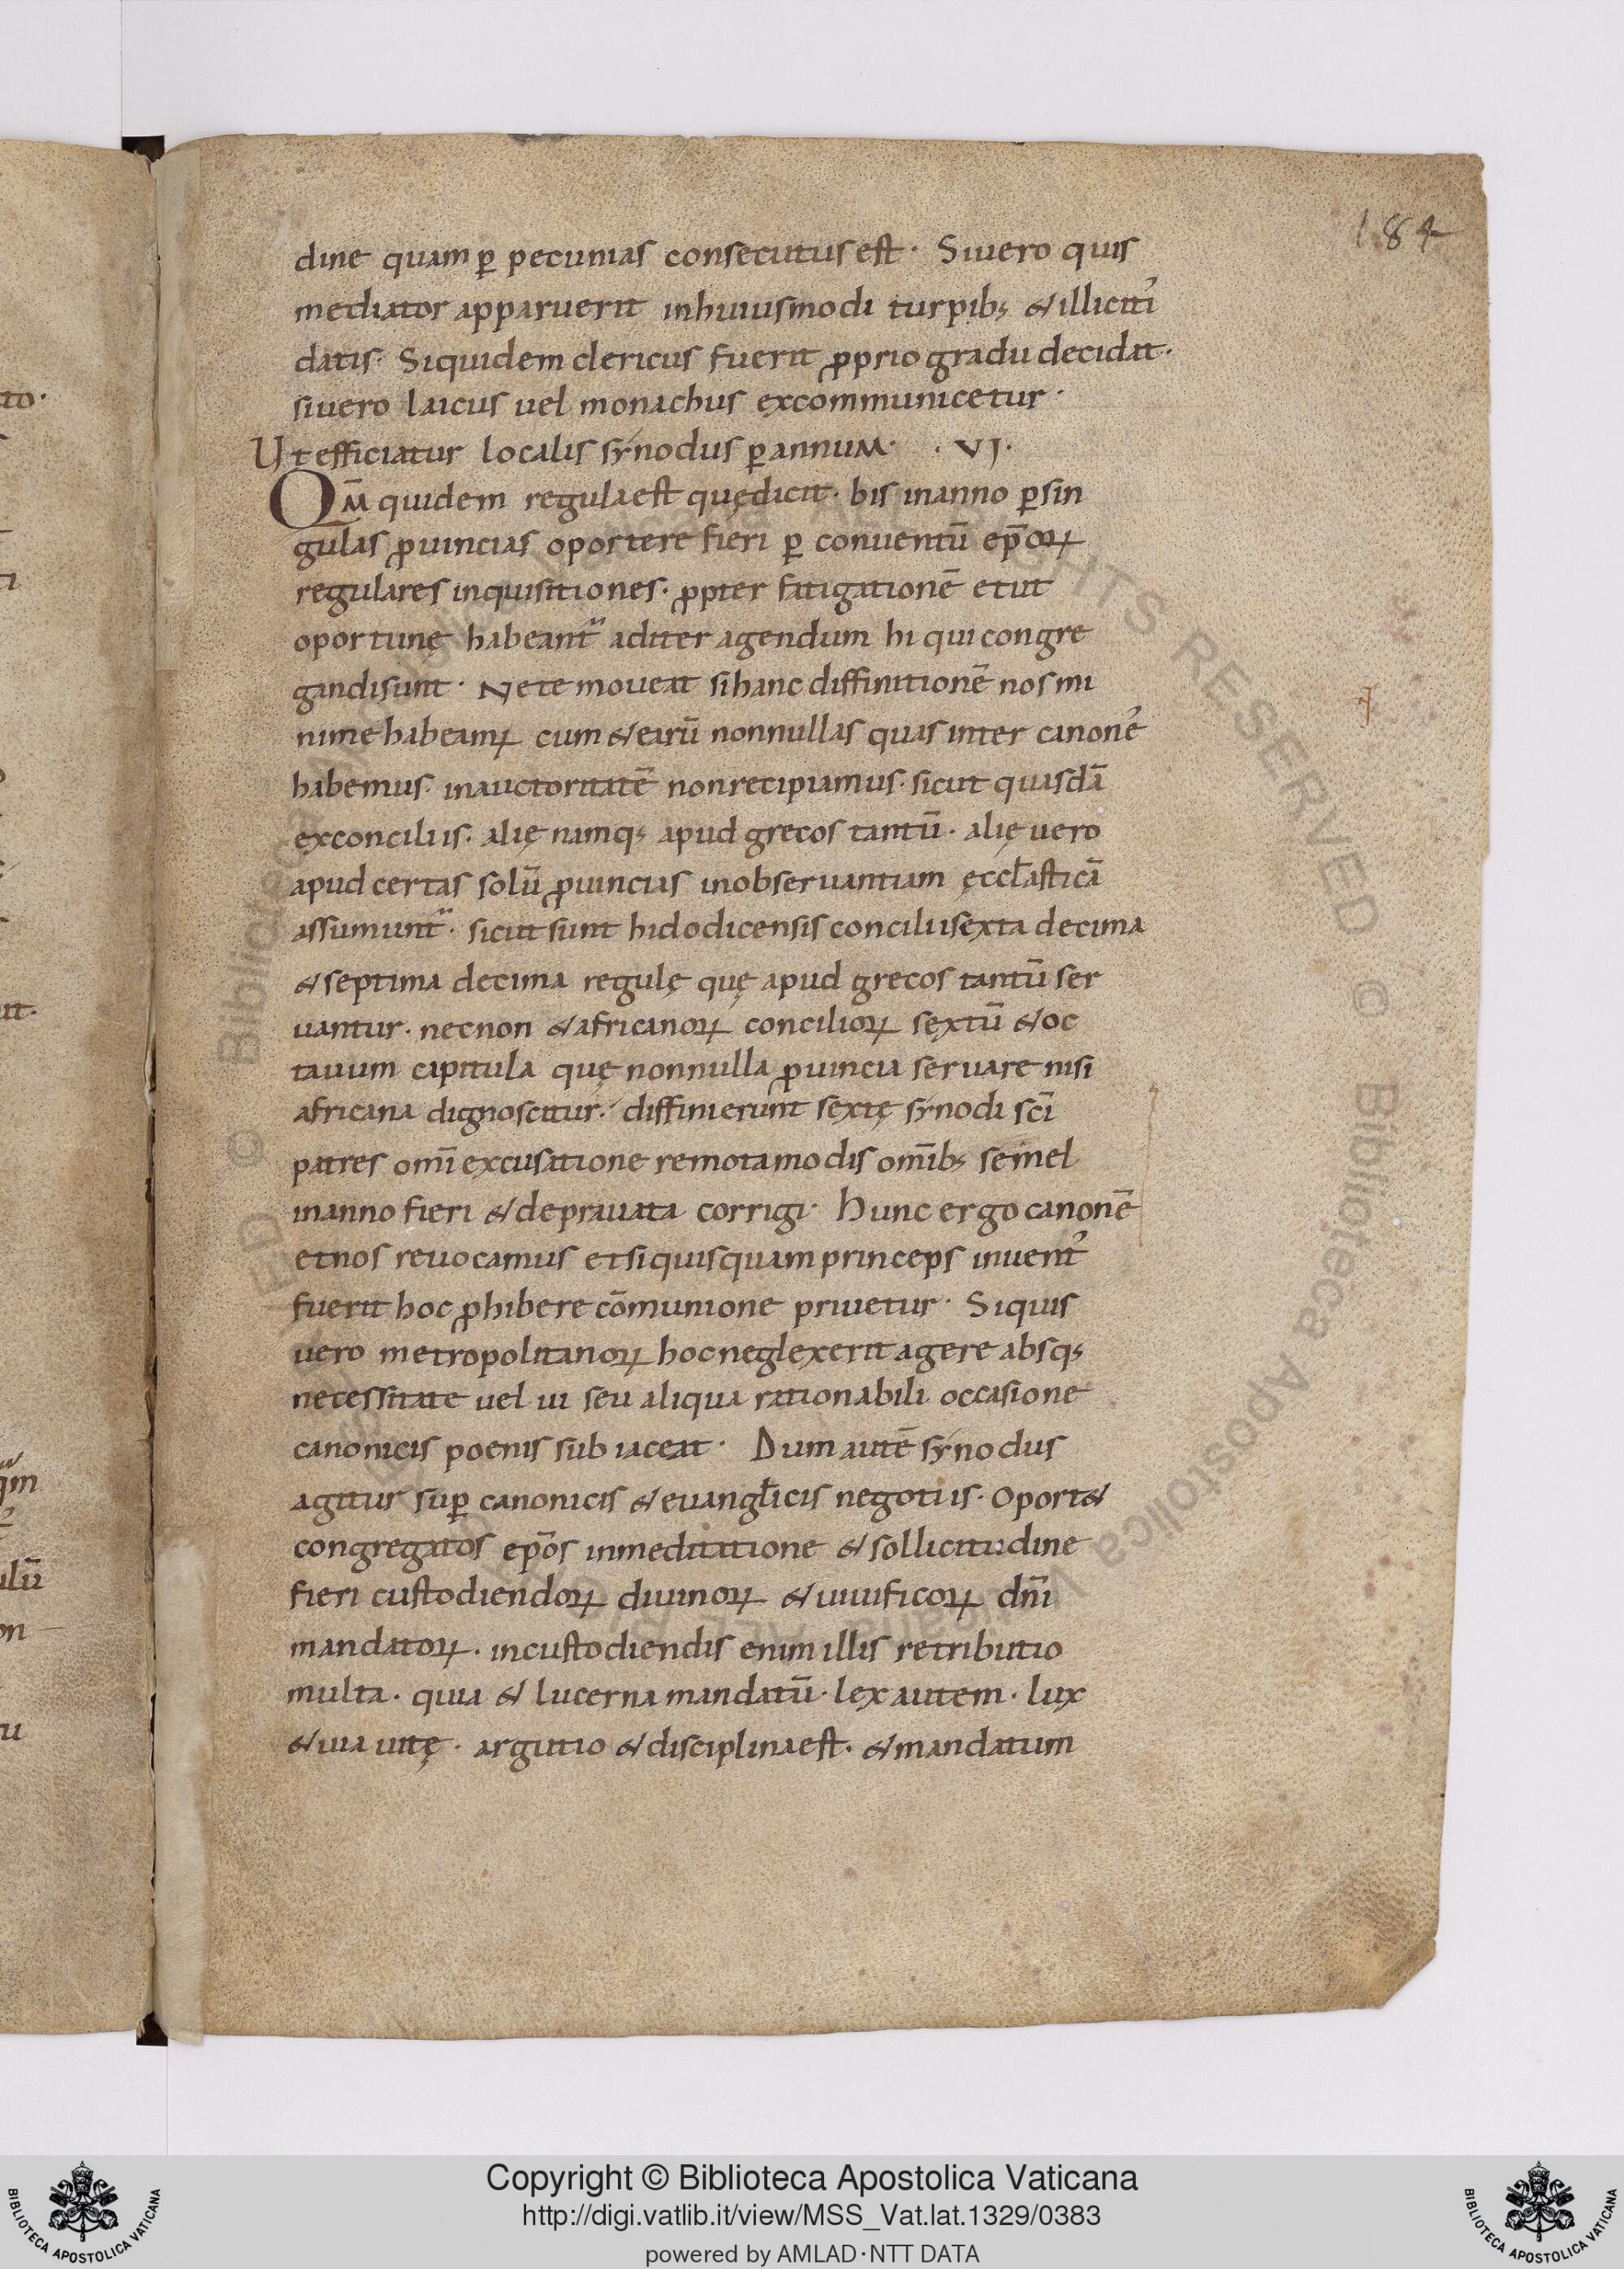 184
dine quam ꝑ pecunias consecutus est· Si uero quis
mediator apparuerit in huiusmodi turpib; & illiciti᾽
datis· Siquidem clericus fuerit ꝓprio gradu decidat·
si uero laicus uel monachus excommunicetur·
Ut efficiatur localis synodus ꝑ annum· ·VI·
Qm̄ quidem regula est quę dicit· bis in anno ꝑ sin
gulas ꝓuincias oportere fieri ꝑ conuentū ep̄oꝝ
regulares inquisitiones· ꝓpter fatigationē et ut
oportunę habeant᷑ ad iter agendum hi qui congre
gandi sunt· Ne te moueat si hanc diffinitionē nos mi
nime habeamꝰ cum & earū nonnullas quas inter canone᾽
habemus· in auctoritatē non recipiamus· sicut quasdā
ex conciliis· alię namq; apud grecos tantū· alię uero
apud certas solū ꝓuincias in obseruantiam ęccl̄asticā
assumunt᷑· sicut sunt hidodicensis concilii sexta decima
& septima decima regulę quę apud grecos tantū ser
uantur· necnon & africanoꝝ concilioꝝ sextū & oc
tauum capitula quę nonnulla ꝓuincia seruare nisi
africana dignoscitur· diffinierunt sextę synodi sc̄i
patres omī excusatione remota modis omīb; semel
in anno fieri & deprauata corrigi· Hunc ergo canonē
et nos reuocamus et si quisquam princeps inuent᾽
fuerit hoc ꝓhibere cōmunione priuetur· Si quis
uero metropolitanoꝝ hoc neglexerit agere absq;
necessitate uel ui seu aliqua rationabili occasione
canonicis poenis subiaceat· Dum autē synodus
agitur suꝑ canonicis & euangl̄icis negotiis· Oport&
congregatos ep̄os in meditatione & sollicitudine
fieri custodiendoꝝ diuinoꝝ & uiuificoꝝ dn̄i
mandatoꝝ· in custodiendis enim illis retributio
multa· quia & lucerna mandatū· lex autem· lux
& uia uitę· argutio & disciplina est· & mandatum
Copyright © Biblioteca Apostolica Vaticana
http://digi.vatlib.it/view/MSS_Vat.lat.1329/0383
powered by AMLAD·NTT DATA
BIBLIOTECA APOSTOLICA VATICANA
BIBLIOTECA APOSTOLICA VATICANA